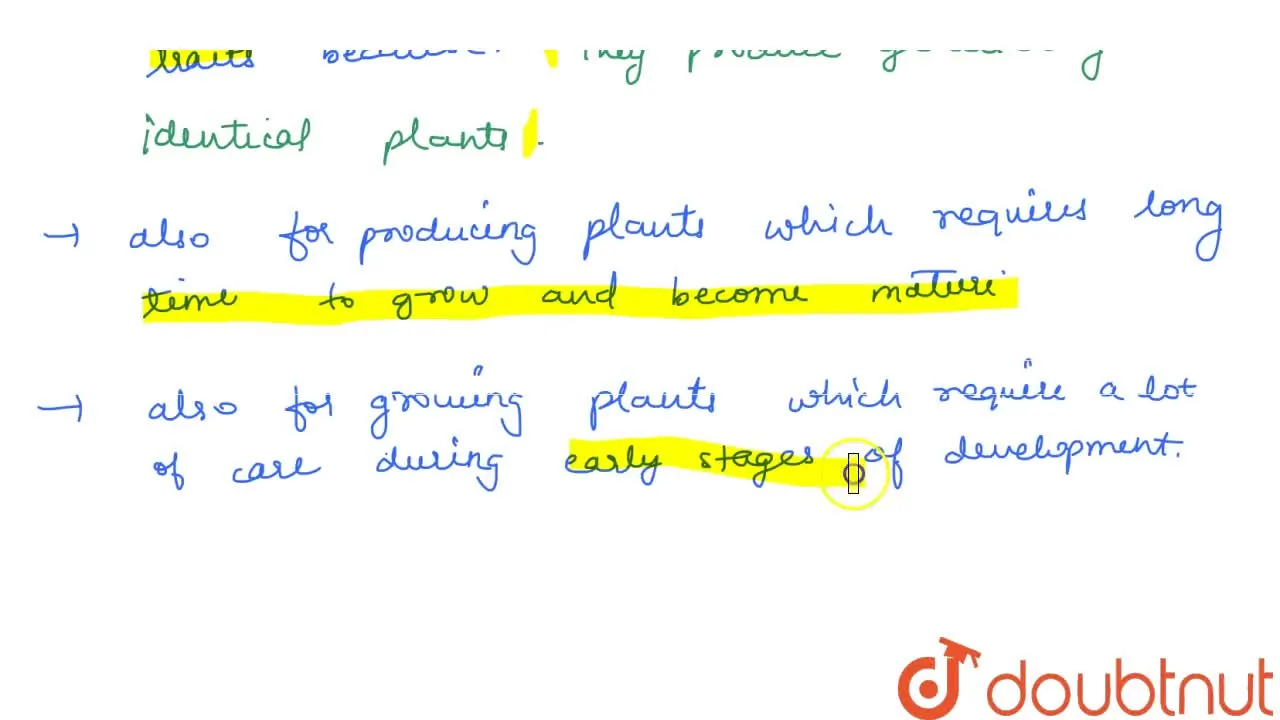 traits because They produce
identical plants.
→ also for producing plants which requires long
time to grow and become mature
→ also for growing plants which require a lot
of care during early stages of development.
doubtnut